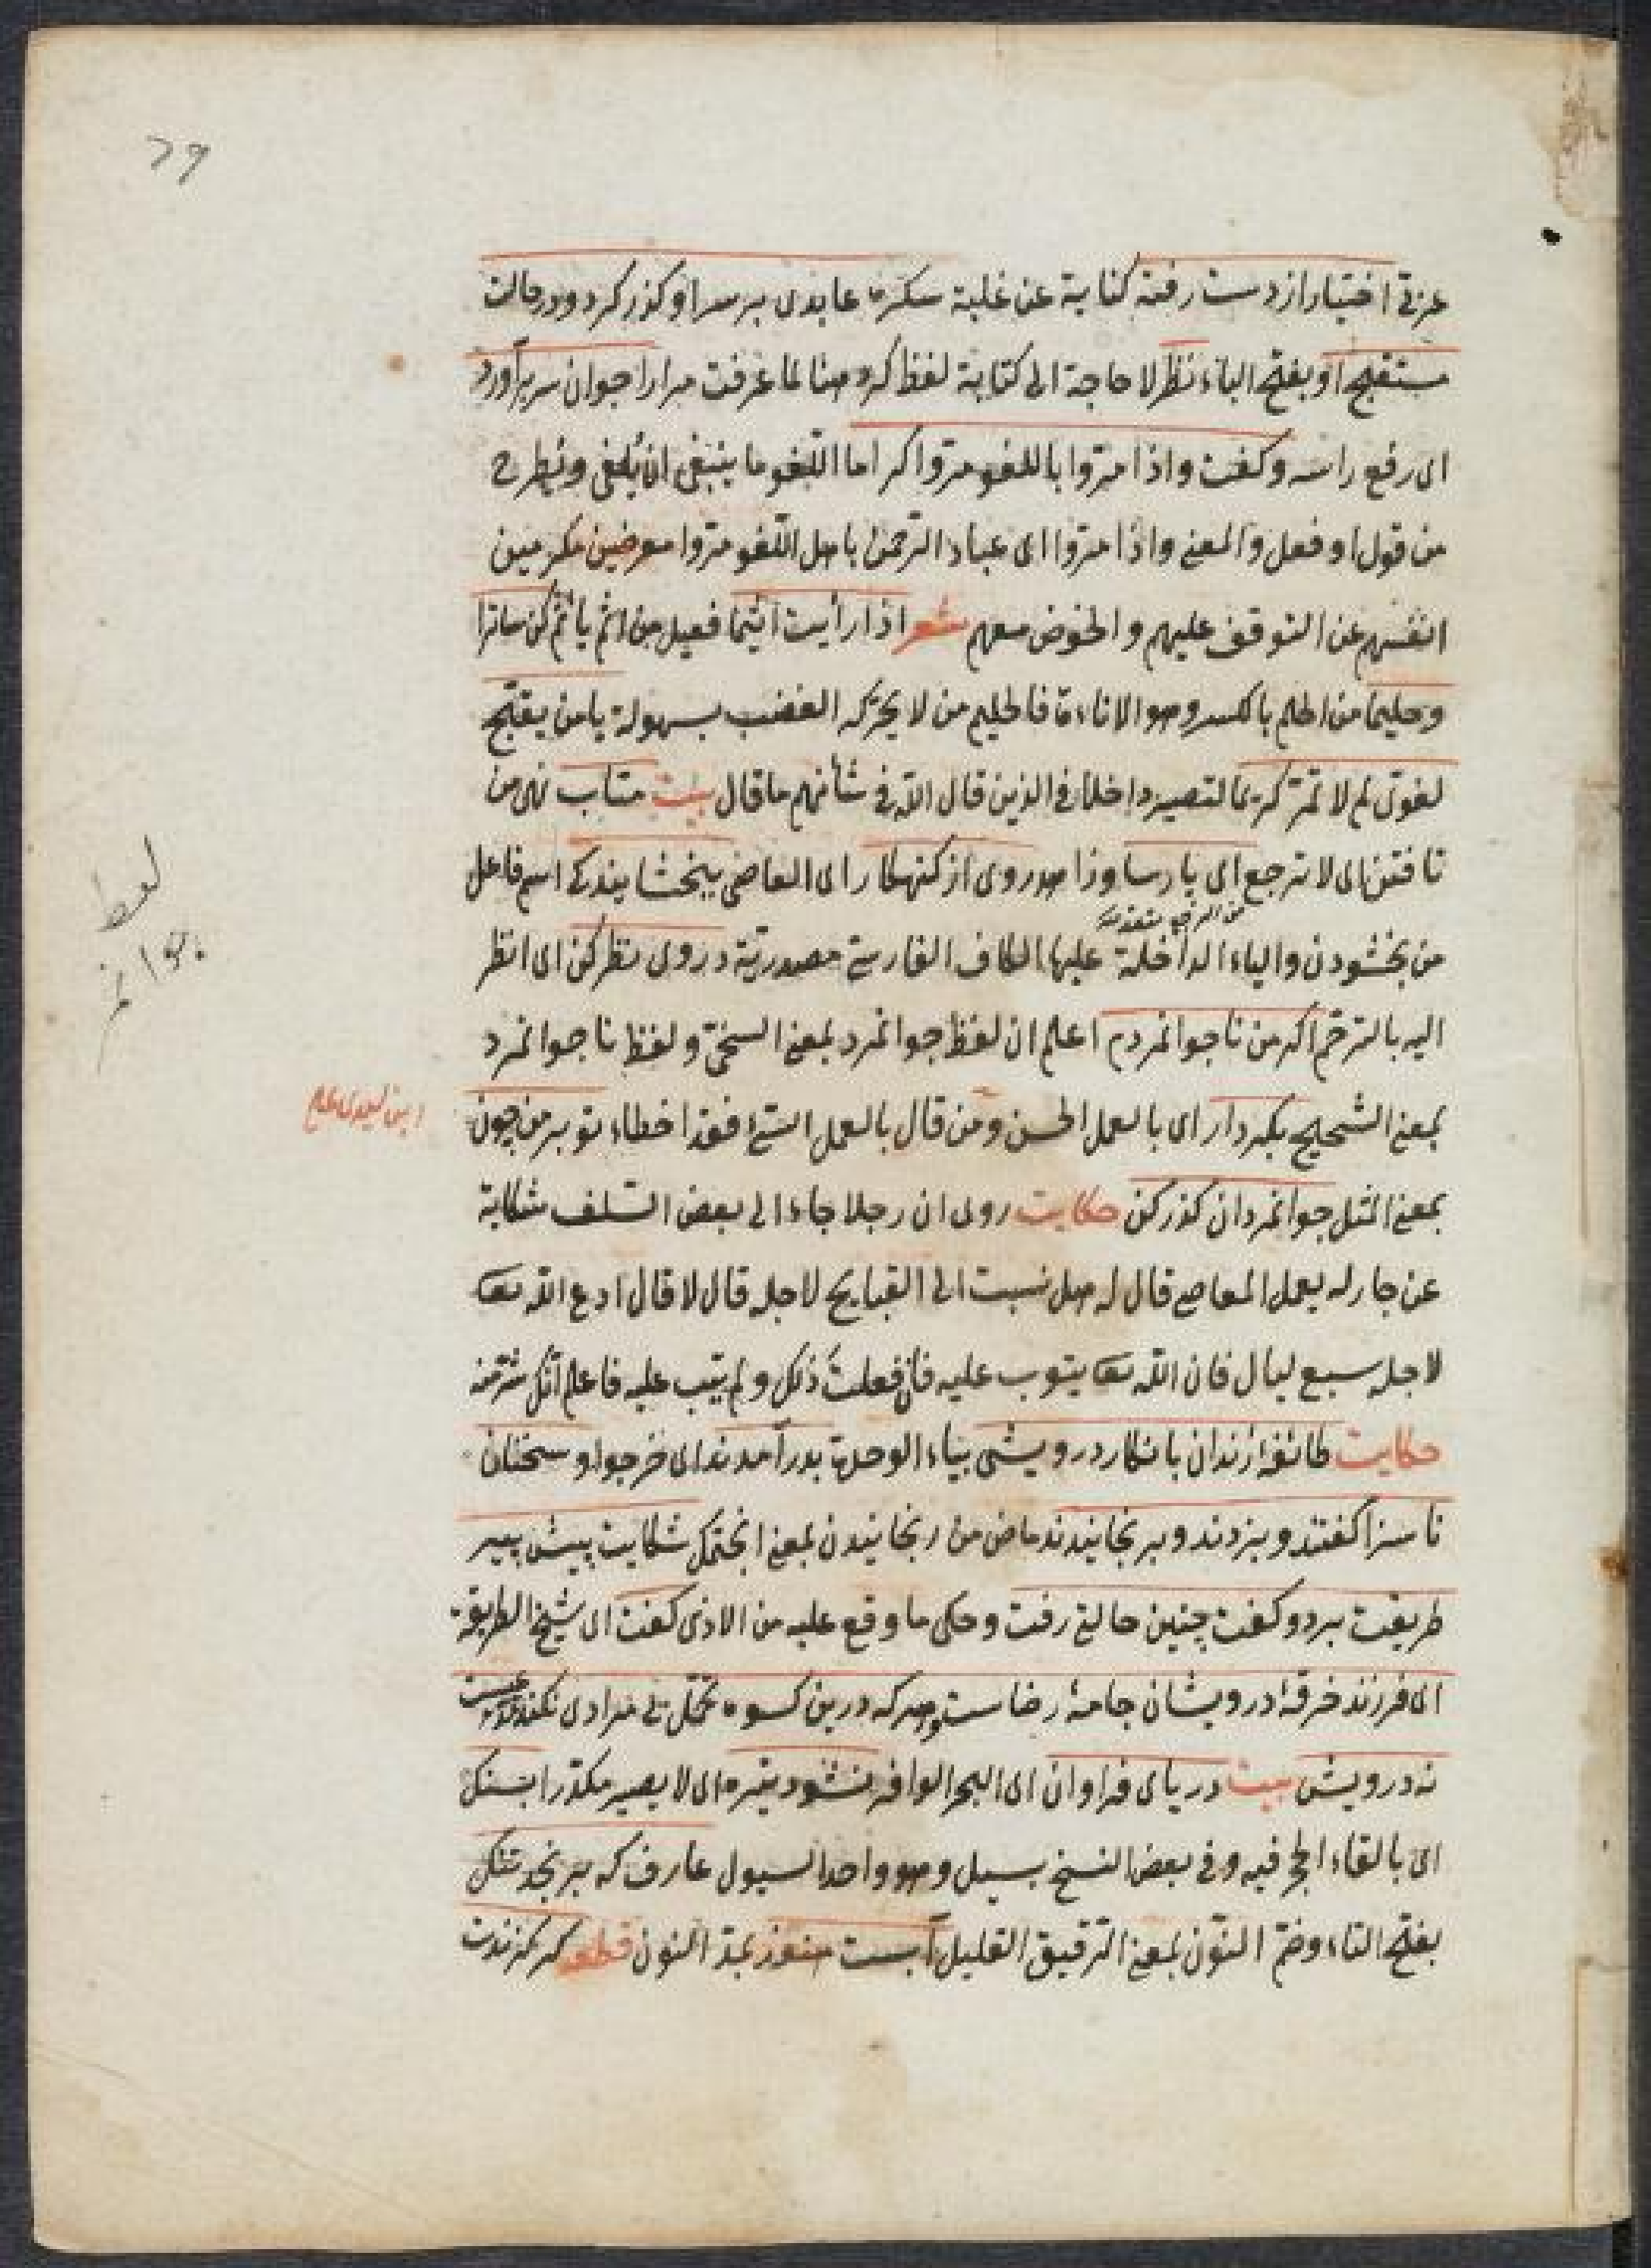 ٢٩
عزتی اختیار از دست رفته كناية عن غلبة سكره عابدی بر سر او كذر كرد ودر حالت
مستقبح او بفتح الباء نظر لا حاجة الى كتابة لفظ كرد هنا لما عرفت مرارا جوان سر بر آورد
اى رفع راسه وكفت واذا مروا باللغو مروا كراما اللغو ما ينبغى ان يلغى ويطرح
من قول او فعل والمعنى واذا مروا اى عباد الرحمن باهل اللغو مروا معرضين مكرمين
انفسهم عن التوقف عليهم والخوض معهم شعر اذا رأيت اثيما فعيل من اثم يأثم كن ساترا
وحليما من الحلم بالكسر وهو الاناءة فالحليم من لا يحركه الغضب بسهولة يا من يقبح
لغوى لم لا تمر كريما لتصير داخلا فى الذين قال الله فى شأنهم ما قال بيت متاب نهى من
تافتن اى لا ترجع اى پارسا وزاهد روى از كنهكار اى العاصى ببخشايندكى اسم فاعل
من الرخو متقدمة
من بخشودن والياء الداخلة عليها الكاف الفارسية مصدرية در وى نظر كن اى انظر
اليه بالترحم اكر من ناجوانمردم اعلم ان لفظ جوانمرد بمعنى السخى ولفظ ناجوانمرد
بمعنى الشحيح بكردار اى بالعمل الحسن ومن قال بالعمل السئ فقد اخطاء تو بر من چون
بمعنى المثل جوانمردان كذر كن حكايت روى ان رجلا جاء الى بعض السلف شكاية
عن جار له يعمل المعاصى قال له هل نسبت الى القبايح لاجله قال لا قال ادع الله تعا
لاجله سبع ليال فان الله تعا يتوب عليه فان فعلت ذلك ولم يتب عليه فاعلم انك شر منه
حكايت طائفه ازندان بانكار درويشى بياء الوحدة بدر آمدند اى خرجوا وسخنان
ناسزا كفتند وبزدند وبرنجانيدند ماض من رنجانيدن بمعنى انجتمك شكايت پيش پير
طريقت برد وكفت چنين حالتى رفت وحكى ما وقع عليه من الاذى كفت اى شيخ الطريقة
اى فرزند خرقۀ درويشان جامۀ رضاست وهر كه درين كسوه تحمل بى مرادى نكند مدعيست
نه درويش بيت درياى فراوان اى البحر الوافر نشود تيره اى لا يصير مكدرا بسنك
اى بالقاء الحجر فيه وفى بعض النسخ بسيل وهو واحد السيول عارف كه برنجد تنك
بفتح التاء وضم النون بمعنى الرقيق القليل آبست هنوز بمد النون قطعه كر كزندت
لفظ
جوانمر